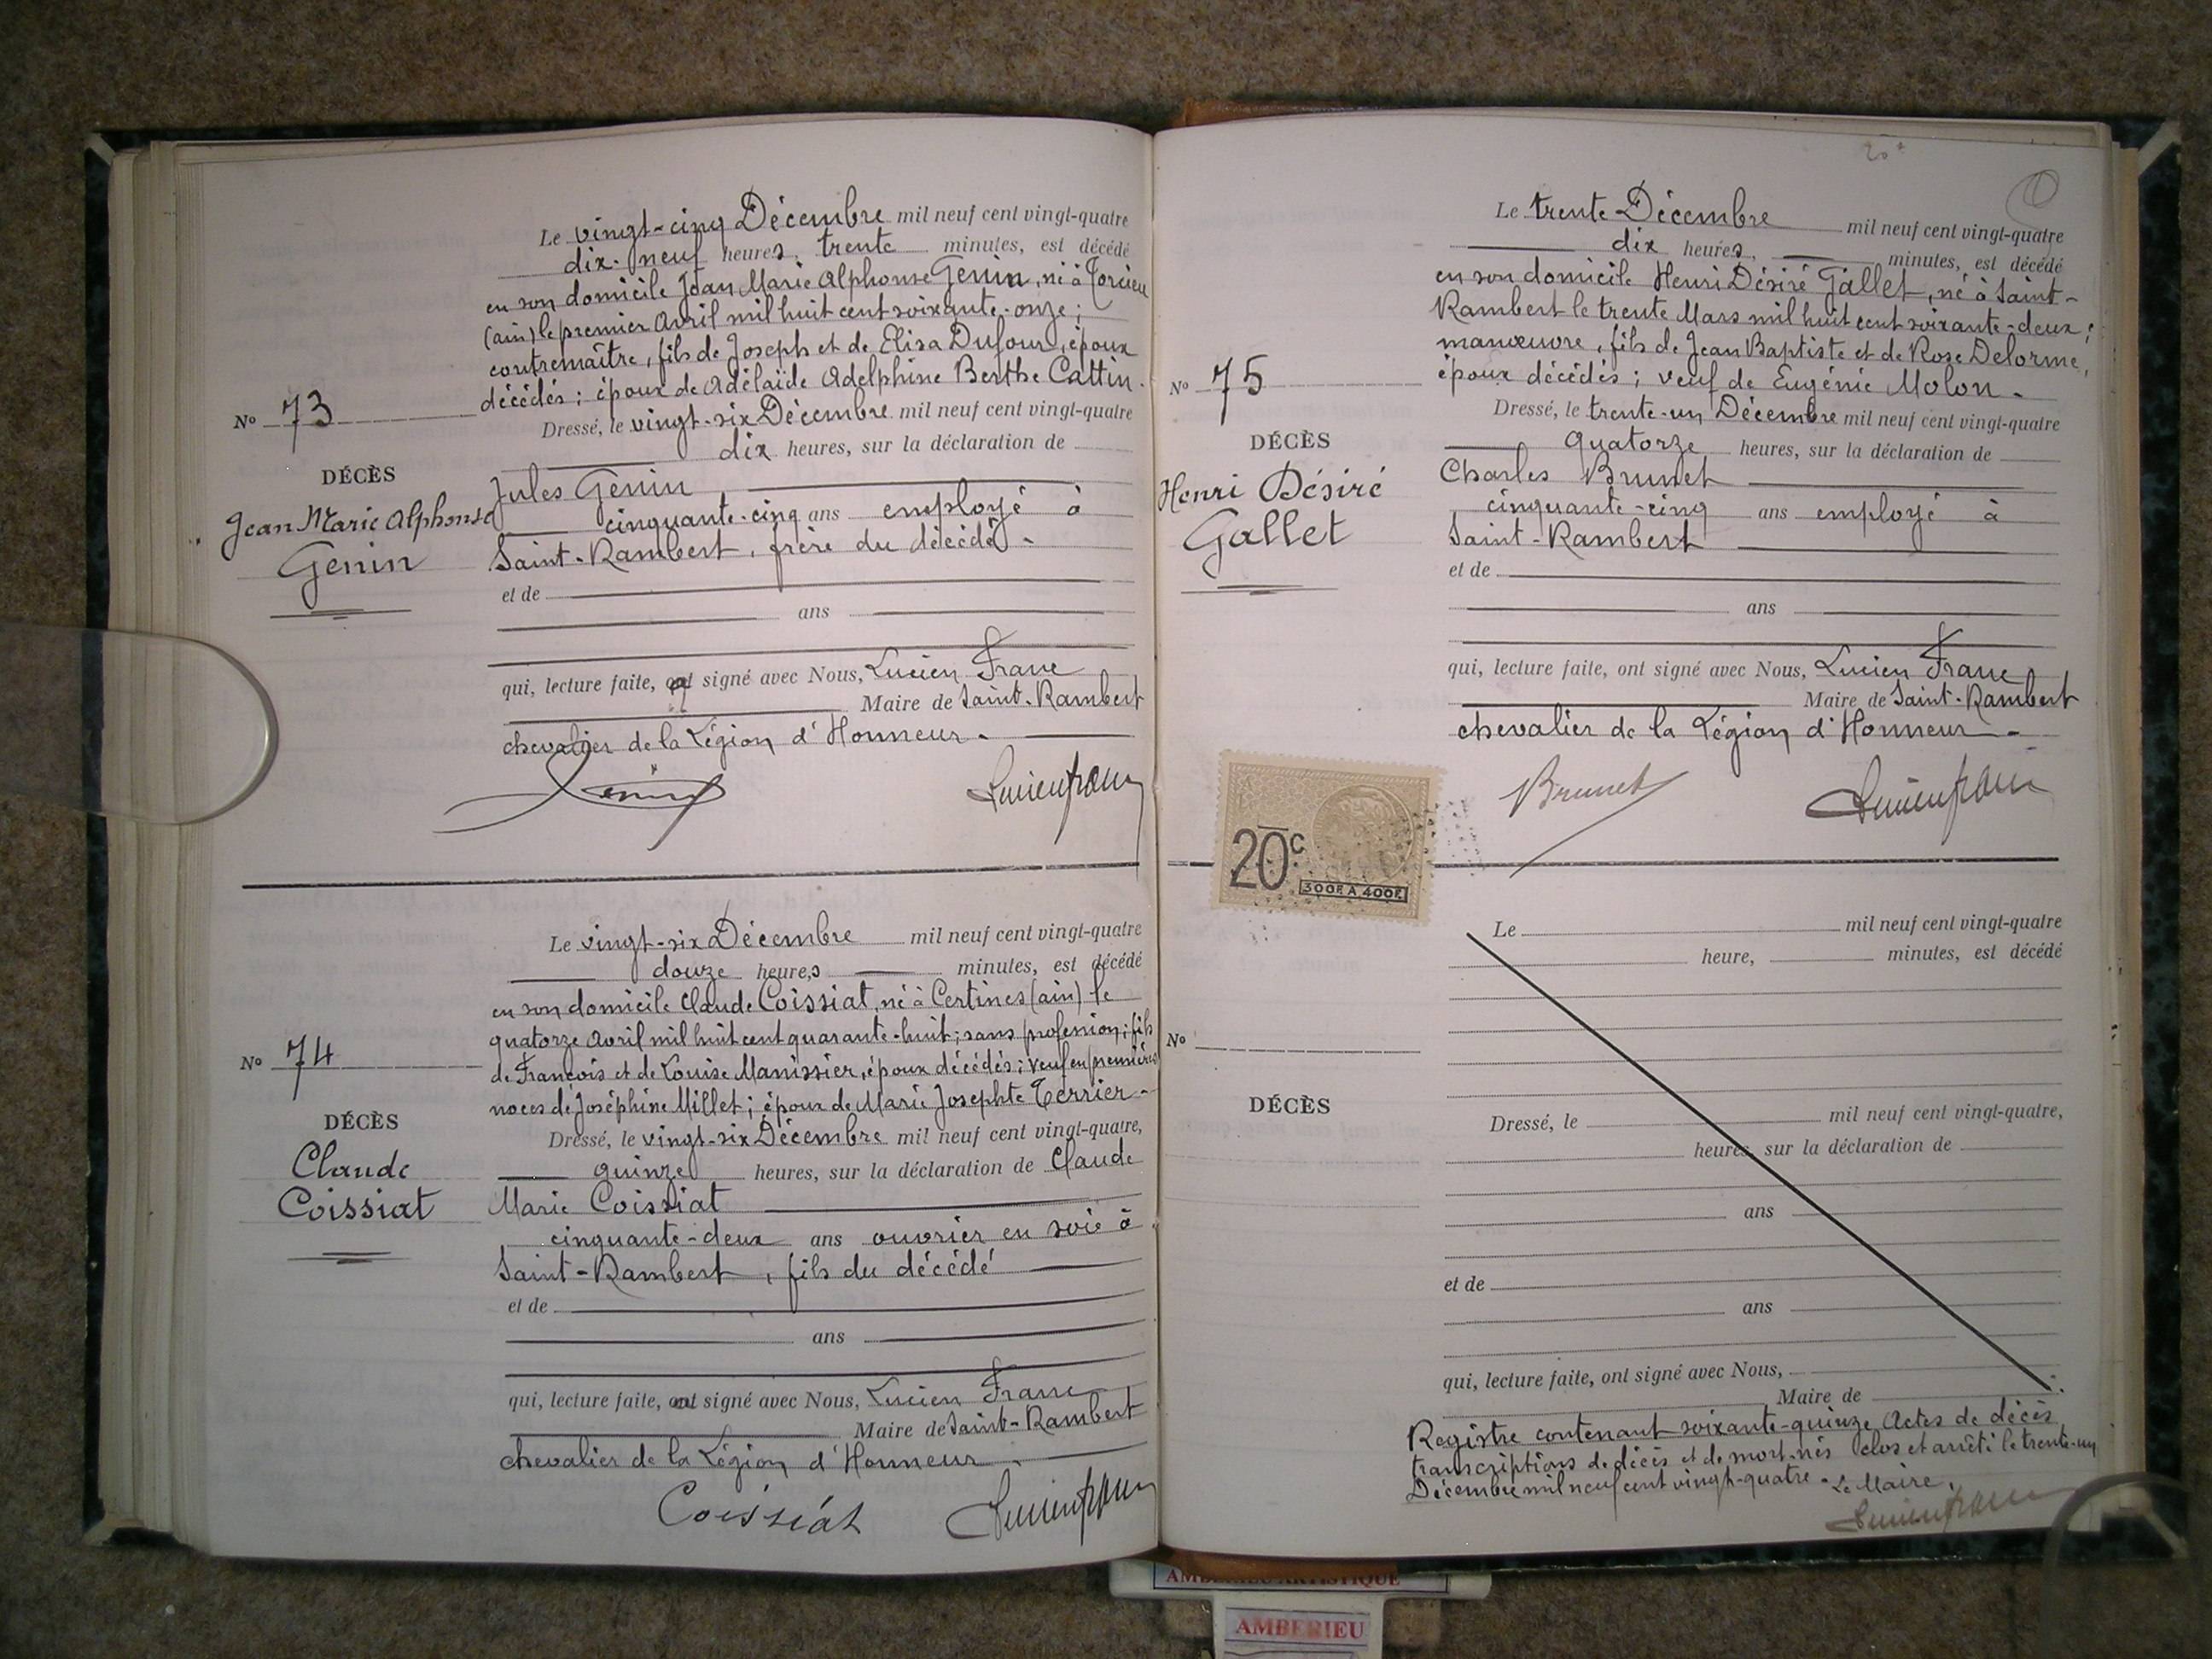 Le vingt-cinq Décembre mil neuf cent vingt-quatre
dix-neuf heures, trente minutes, est décédé
en son domicile Jean Marie Alphonse Genin, né à Torcieu
(ain) le premier Avril mil huit cent soixante-onze ;
contremaître, fils de Joseph et de Elisa Dufour, époux
décédés ; époux de Adélaïde Adelphine Berthe Cattin.
No 73
Dressé, le vingt-six Décembre mil neuf cent vingt-quatre
dix heures, sur la déclaration de
DÉCÈS
Jean Marie Alphonse
Genin
Jules Genin
cinquante-cinq ans employé à
Saint-Rambert, frère du décédé.
et de
ans
qui, lecture faite, ont signé avec Nous, Lucien Franc
Maire de Saint-Rambert
chevalier de la Légion d'Honneur.
Genin Lucien franc
Le vingt-six Décembre mil neuf cent vingt-quatre
douze heures minutes, est décédé
en son domicile Claude Coissiat, né à Certines (ain) le
quatorze Avril mil huit cent quarante-huit ; sans profession ; fils
de François et de Louise Manissier, époux décédés ; veuf en premières
noces de Joséphine Millet ; époux de Marie Josephte Terrier.
No 74
Dressé, le vingt-six Décembre mil neuf cent vingt-quatre,
quinze heures, sur la déclaration de Claude
DÉCÈS
Claude
Coissiat
Marie Coissiat
cinquante-deux ans ouvrier en soie à
Saint-Rambert, fils du décédé
et de
ans
qui, lecture faite, ont signé avec Nous, Lucien Franc
Maire de Saint-Rambert
chevalier de la Légion d'Honneur.
Coissiat Lucien franc
Le trente Décembre mil neuf cent vingt-quatre
dix heures, minutes, est décédé
en son domicile Henri Désiré Gallet, né à Saint-
Rambert le trente Mars mil huit cent soixante-deux ;
manœuvre, fils de Jean Baptiste et de Rose Delorme,
époux décédés ; veuf de Eugénie Molon.
No 75
Dressé, le trente-un Décembre mil neuf cent vingt-quatre
quatorze heures, sur la déclaration de
DÉCÈS
Henri Désiré
Gallet
Charles Brunet
cinquante-cinq ans employé à
Saint-Rambert
et de
ans
qui, lecture faite, ont signé avec Nous, Lucien Franc
Maire de Saint-Rambert
chevalier de la Légion d'Honneur.
Brunet Lucien franc
20c
300F. A 400F.
Le mil neuf cent vingt-quatre
heure, minutes, est décédé
No
DÉCÈS
Dressé, le mil neuf cent vingt-quatre,
heures, sur la déclaration de
ans
et de
ans
qui, lecture faite, ont signé avec Nous,
Maire de
Registre contenant soixante-quinze Actes de décès
transcriptions de décès et de mort-nés clos et arrêté le trente-un
Décembre mil neuf cent vingt-quatre. Le Maire,
Lucien franc
AMBERIEU ARTISTIQUE
AMBERIEU